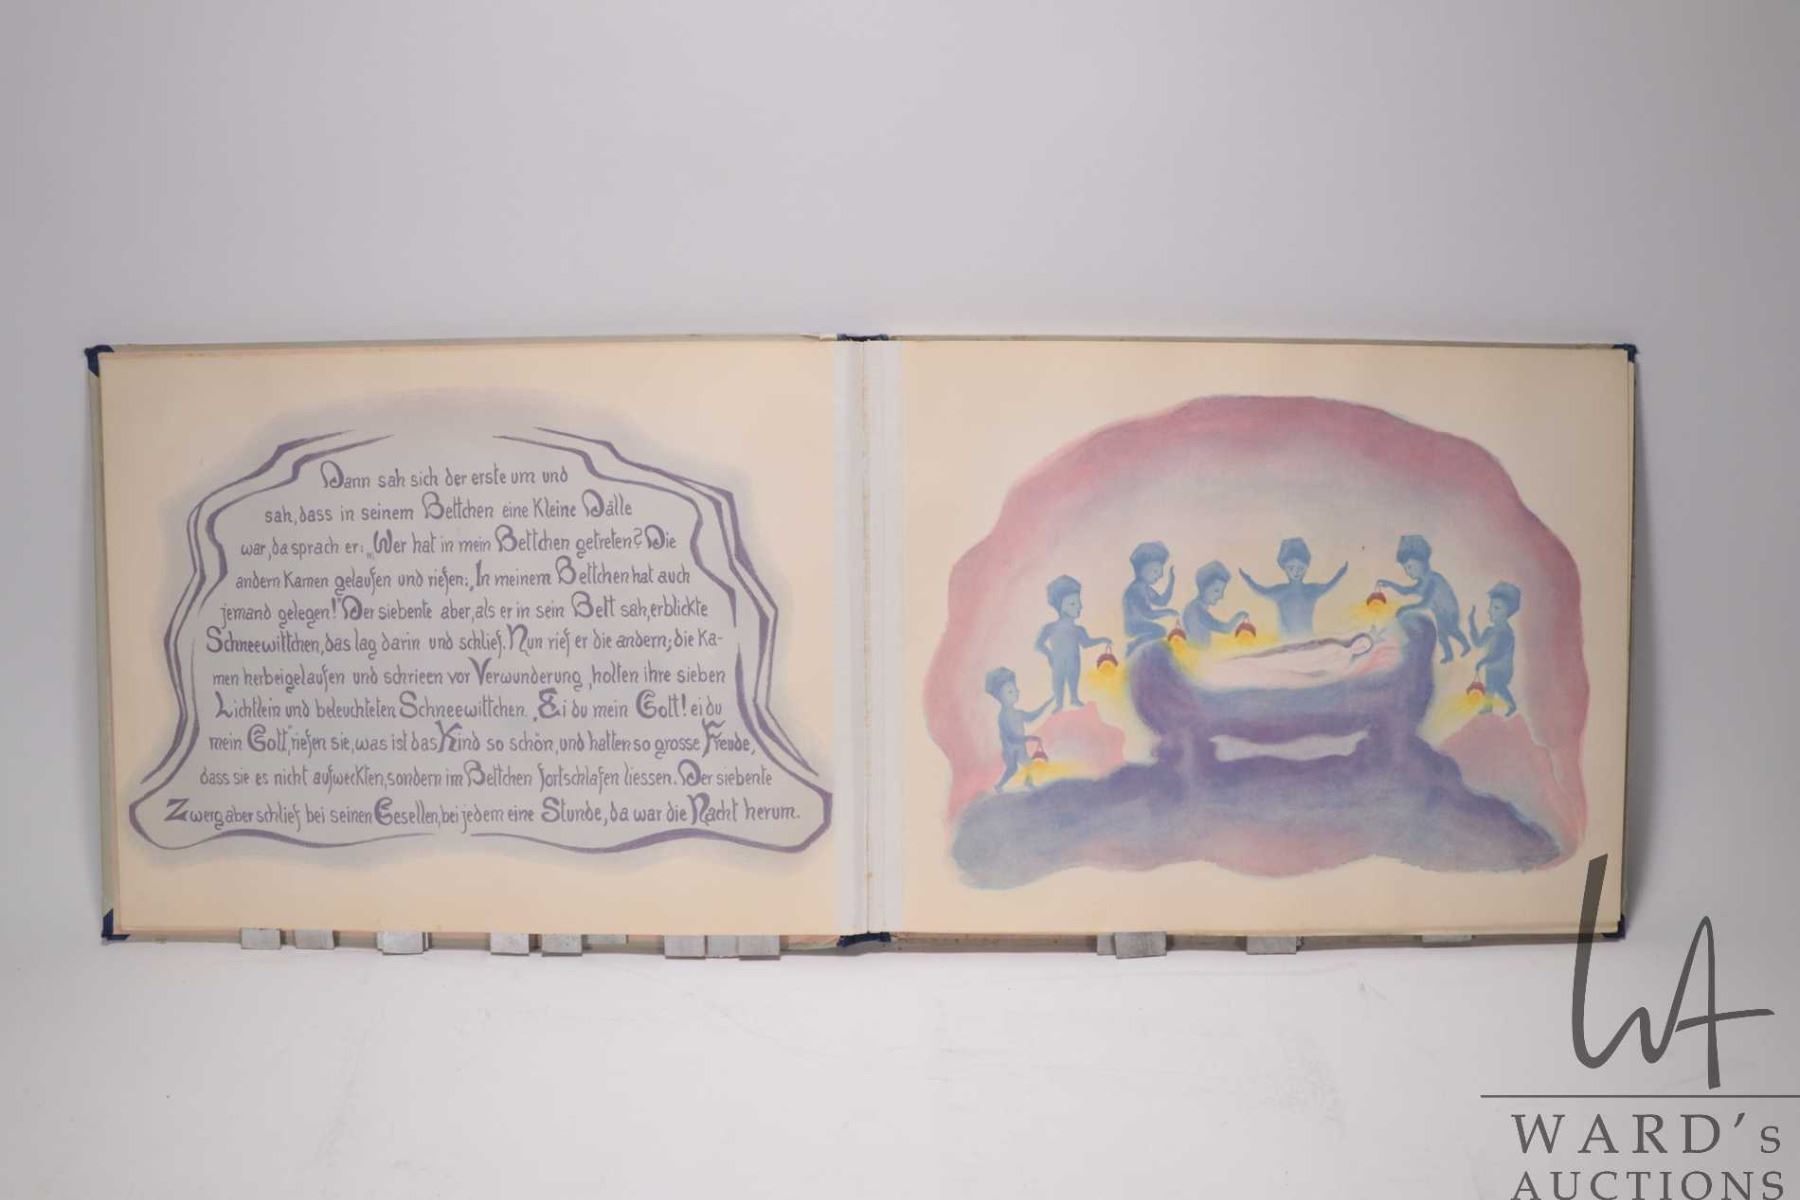 Dann sah sich der erste um und
sah, dass in seinem Bettchen eine Kleine Dälle
war, da sprach er: „Wer hat in mein Bettchen getreten? Die
andern Kamen gelaufen und riefen: „In meinem Bettchen hat auch
jemand gelegen!" Der siebente aber, als er in sein Bett sah, erblickte
Schneewittchen, das lag darin und schlief. Nun rief er die andern; die Ka-
men herbeigelaufen und schrieen vor Verwunderung, holten ihre sieben
Lichtlein und beleuchteten Schneewittchen. „Ei du mein Gott! ei du
mein Gott", riefen sie, was ist das Kind so schön, und hatten so grosse Freude,
dass sie es nicht aufweckten, sondern im Bettchen fortschlafen liessen. Der siebente
Zwerg aber schlief bei seinen Gesellen, bei jedem eine Stunde, da war die Nacht herum.
WA
WARD's
AUCTIONS